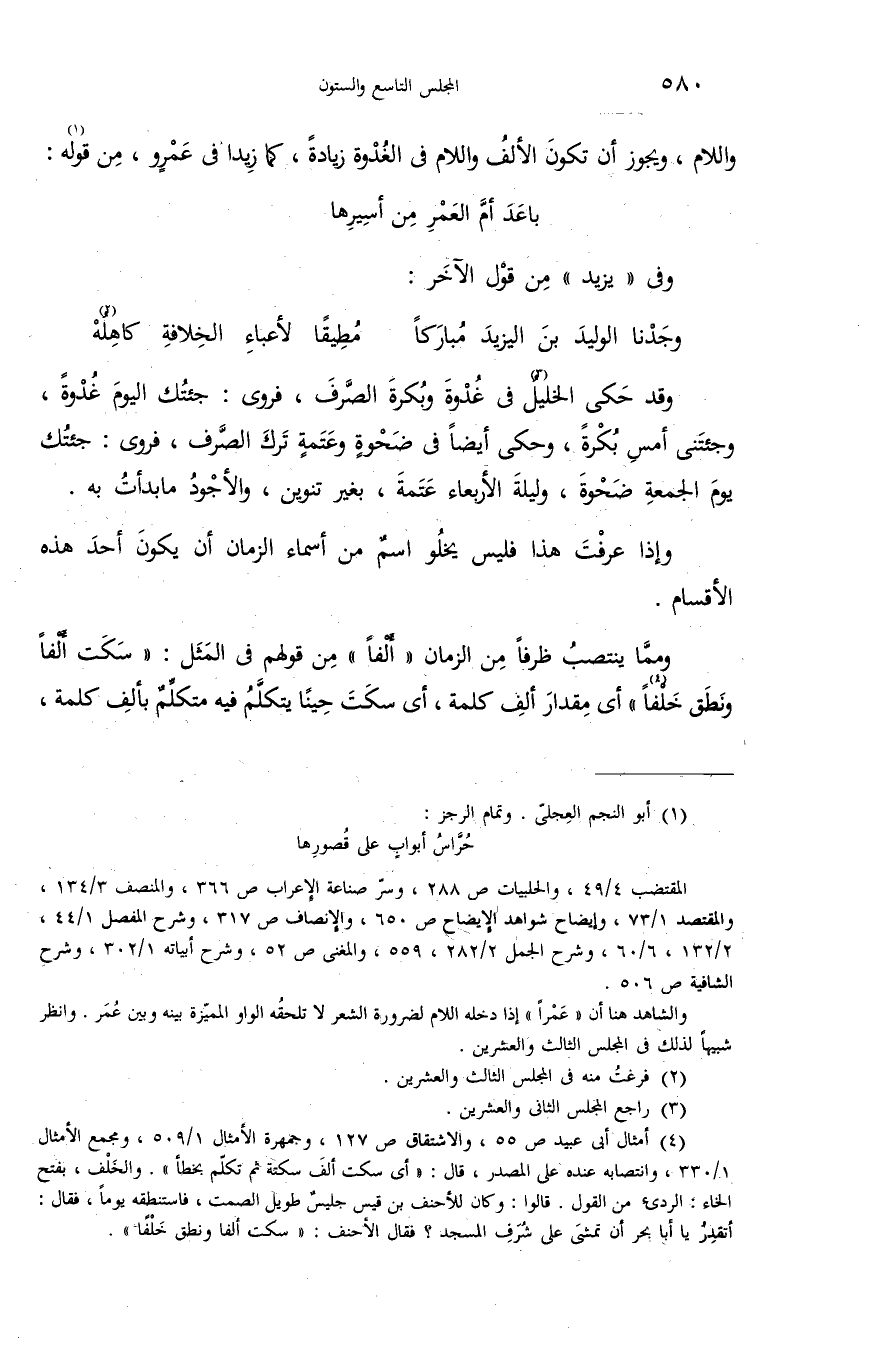 ٥٨٠ المجلس التاسع والستون
واللام ، ويجوز أن تكونَ الألفُ واللام فى الغُدْوة زيادةً ، كما زِيدا فى عَمْرٍو ، مِن قوله(١) :
باعَدَ أمَّ العَمْرِ مِن أسيرِها
وفى « يزيد » مِن قوْل الآخَر :
وجَدْنا الوليدَ بنَ اليزيدَ مُبارَكاً مُطِيقًا لأعباءِ الخِلافةِ كاهِلُهْ(٢)
وقد حَكى الخليلُ(٣) فى غُدْوةَ وبُكرةَ الصَّرفَ ، فروى : جئتُك اليومَ غُدْوةً ،
وجئتَنى أمسِ بُكْرةً ، وحكى أيضاً فى ضَحْوةٍ وعَتَمةٍ تَركَ الصَّرف ، فروى : جئتُك
يومَ الجمعةِ ضَحْوةَ ، وليلةَ الأربعاء عَتَمةَ ، بغير تنوين ، والأجْودُ مابدأتُ به .
وإذا عرفْتَ هذا فليس يخلُو اسمٌ من أسماء الزمان أن يكونَ أحدَ هذه
الأقسام .
وممَّا ينتصبُ ظرفاً مِن الزمان « أَلْفاً » مِن قولهم فى المَثَل : « سَكَت أَلْفاً
ونَطَق خَلْفاً(٤) » أى مِقدارَ ألفِ كلمة ، أى سكَتَ حِينًا يتكلَّمُ فيه متكلِّمٌ بألفِ كلمة ،
(١) أبو النجم العِجلىّ . وتمام الرجز :
حُرَّاسُ أبوابٍ على قُصورِها
المقتضب ٤٩/٤ ، والحلبيات ص ٢٨٨ ، وسرّ صناعة الإعراب ص ٣٦٦ ، والمنصف ١٣٤/٣ ،
والمقتصد ٧٣/١ ، وإيضاح شواهد الإيضاح ص ٦٥٠ ، والإنصاف ص ٣١٧ ، وشرح المفصل ٤٤/١ ،
١٣٢/٢ ، ٦٠/٦ ، وشرح الجمل ٢٨٢/٢ ، ٥٥٩ ، والمغنى ص ٥٢ ، وشرح أبياته ٣٠٢/١ ، وشرح
الشافية ص ٥٠٦ .
والشاهد هنا أن « عَمْراً » إذا دخله اللام لضرورة الشعر لا تلحقُه الواو المميّزة بينه وبين عُمَر . وانظر
شبيهاً لذلك فى المجلس الثالث والعشرين .
(٢) فرغتُ منه فى المجلس الثالث والعشرين .
(٣) راجع المجلس الثانى والعشرين .
(٤) أمثال أبى عبيد ص ٥٥ ، والاشتقاق ص ١٢٧ ، وجمهرة الأمثال ٥٠٩/١ ، ومجمع الأمثال
٣٣٠/١ ، وانتصابه عنده على المصدر ، قال : « أى سكت ألفَ سكتة ثم تكلّم بخطأ » . والخَلْف ، بفتح
الخاء : الردىء من القول . قالوا : وكان للأحنف بن قيس جليسٌ طويل الصمت ، فاستنطقه يوماً ، فقال :
أتقدِرُ يا أبا بحر أن تمشىَ على شُرَفِ المسجد ؟ فقال الأحنف : « سكت ألفا ونطق خَلْفًا » .